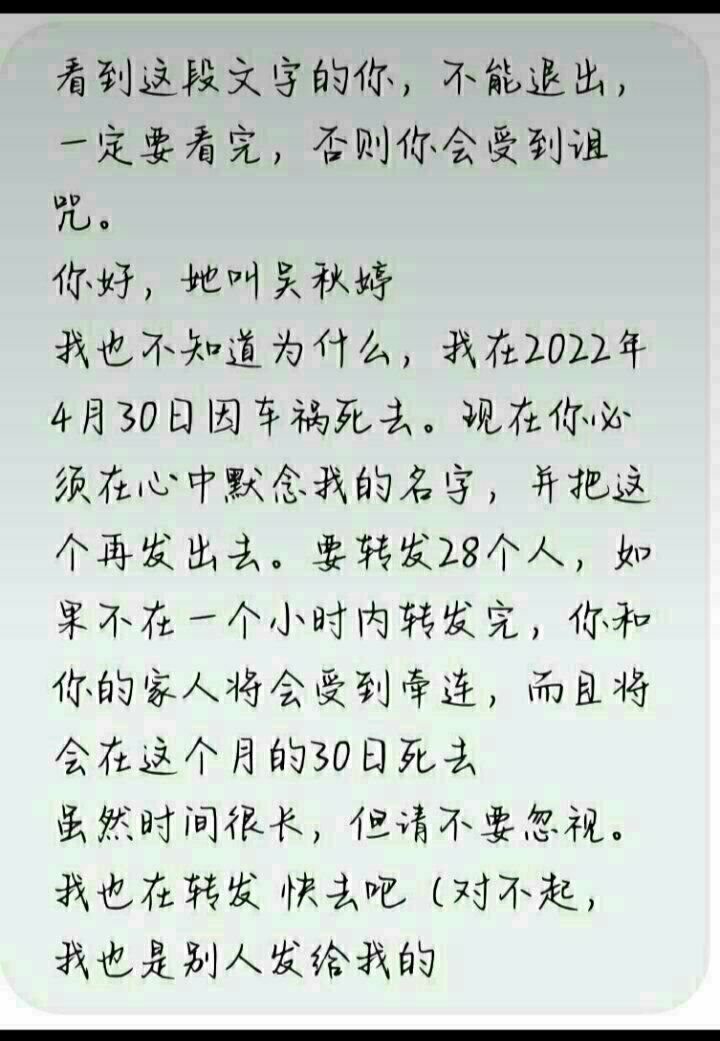 看到这段文字的你，不能退出，
一定要看完，否则你会受到诅
咒。
你好，她叫吴秋婷
我也不知道为什么，我在2022年
4月30日因车祸死去。现在你必
须在心中默念我的名字，并把这
个再发出去。要转发28个人，如
果不在一个小时内转发完，你和
你的家人将会受到牵连，而且将
会在这个月的30日死去
虽然时间很长，但请不要忽视。
我也在转发 快去吧（对不起，
我也是别人发给我的